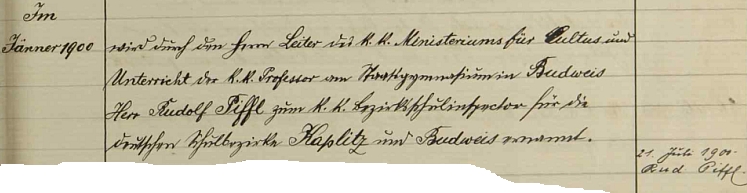 Im
Jänner 1900
wird durch den Herrn Leiter des k. k. Ministeriums für Cultus und
Unterricht der k. k. Professor am Staatsgymnasium in Budweis
Herr Rudolf Piffl zum k. k. Bezirksschulinspector für die
deutschen Schulbezirke Kaplitz und Budweis ernannt.
21. Juli 1900.
Rud Piffl